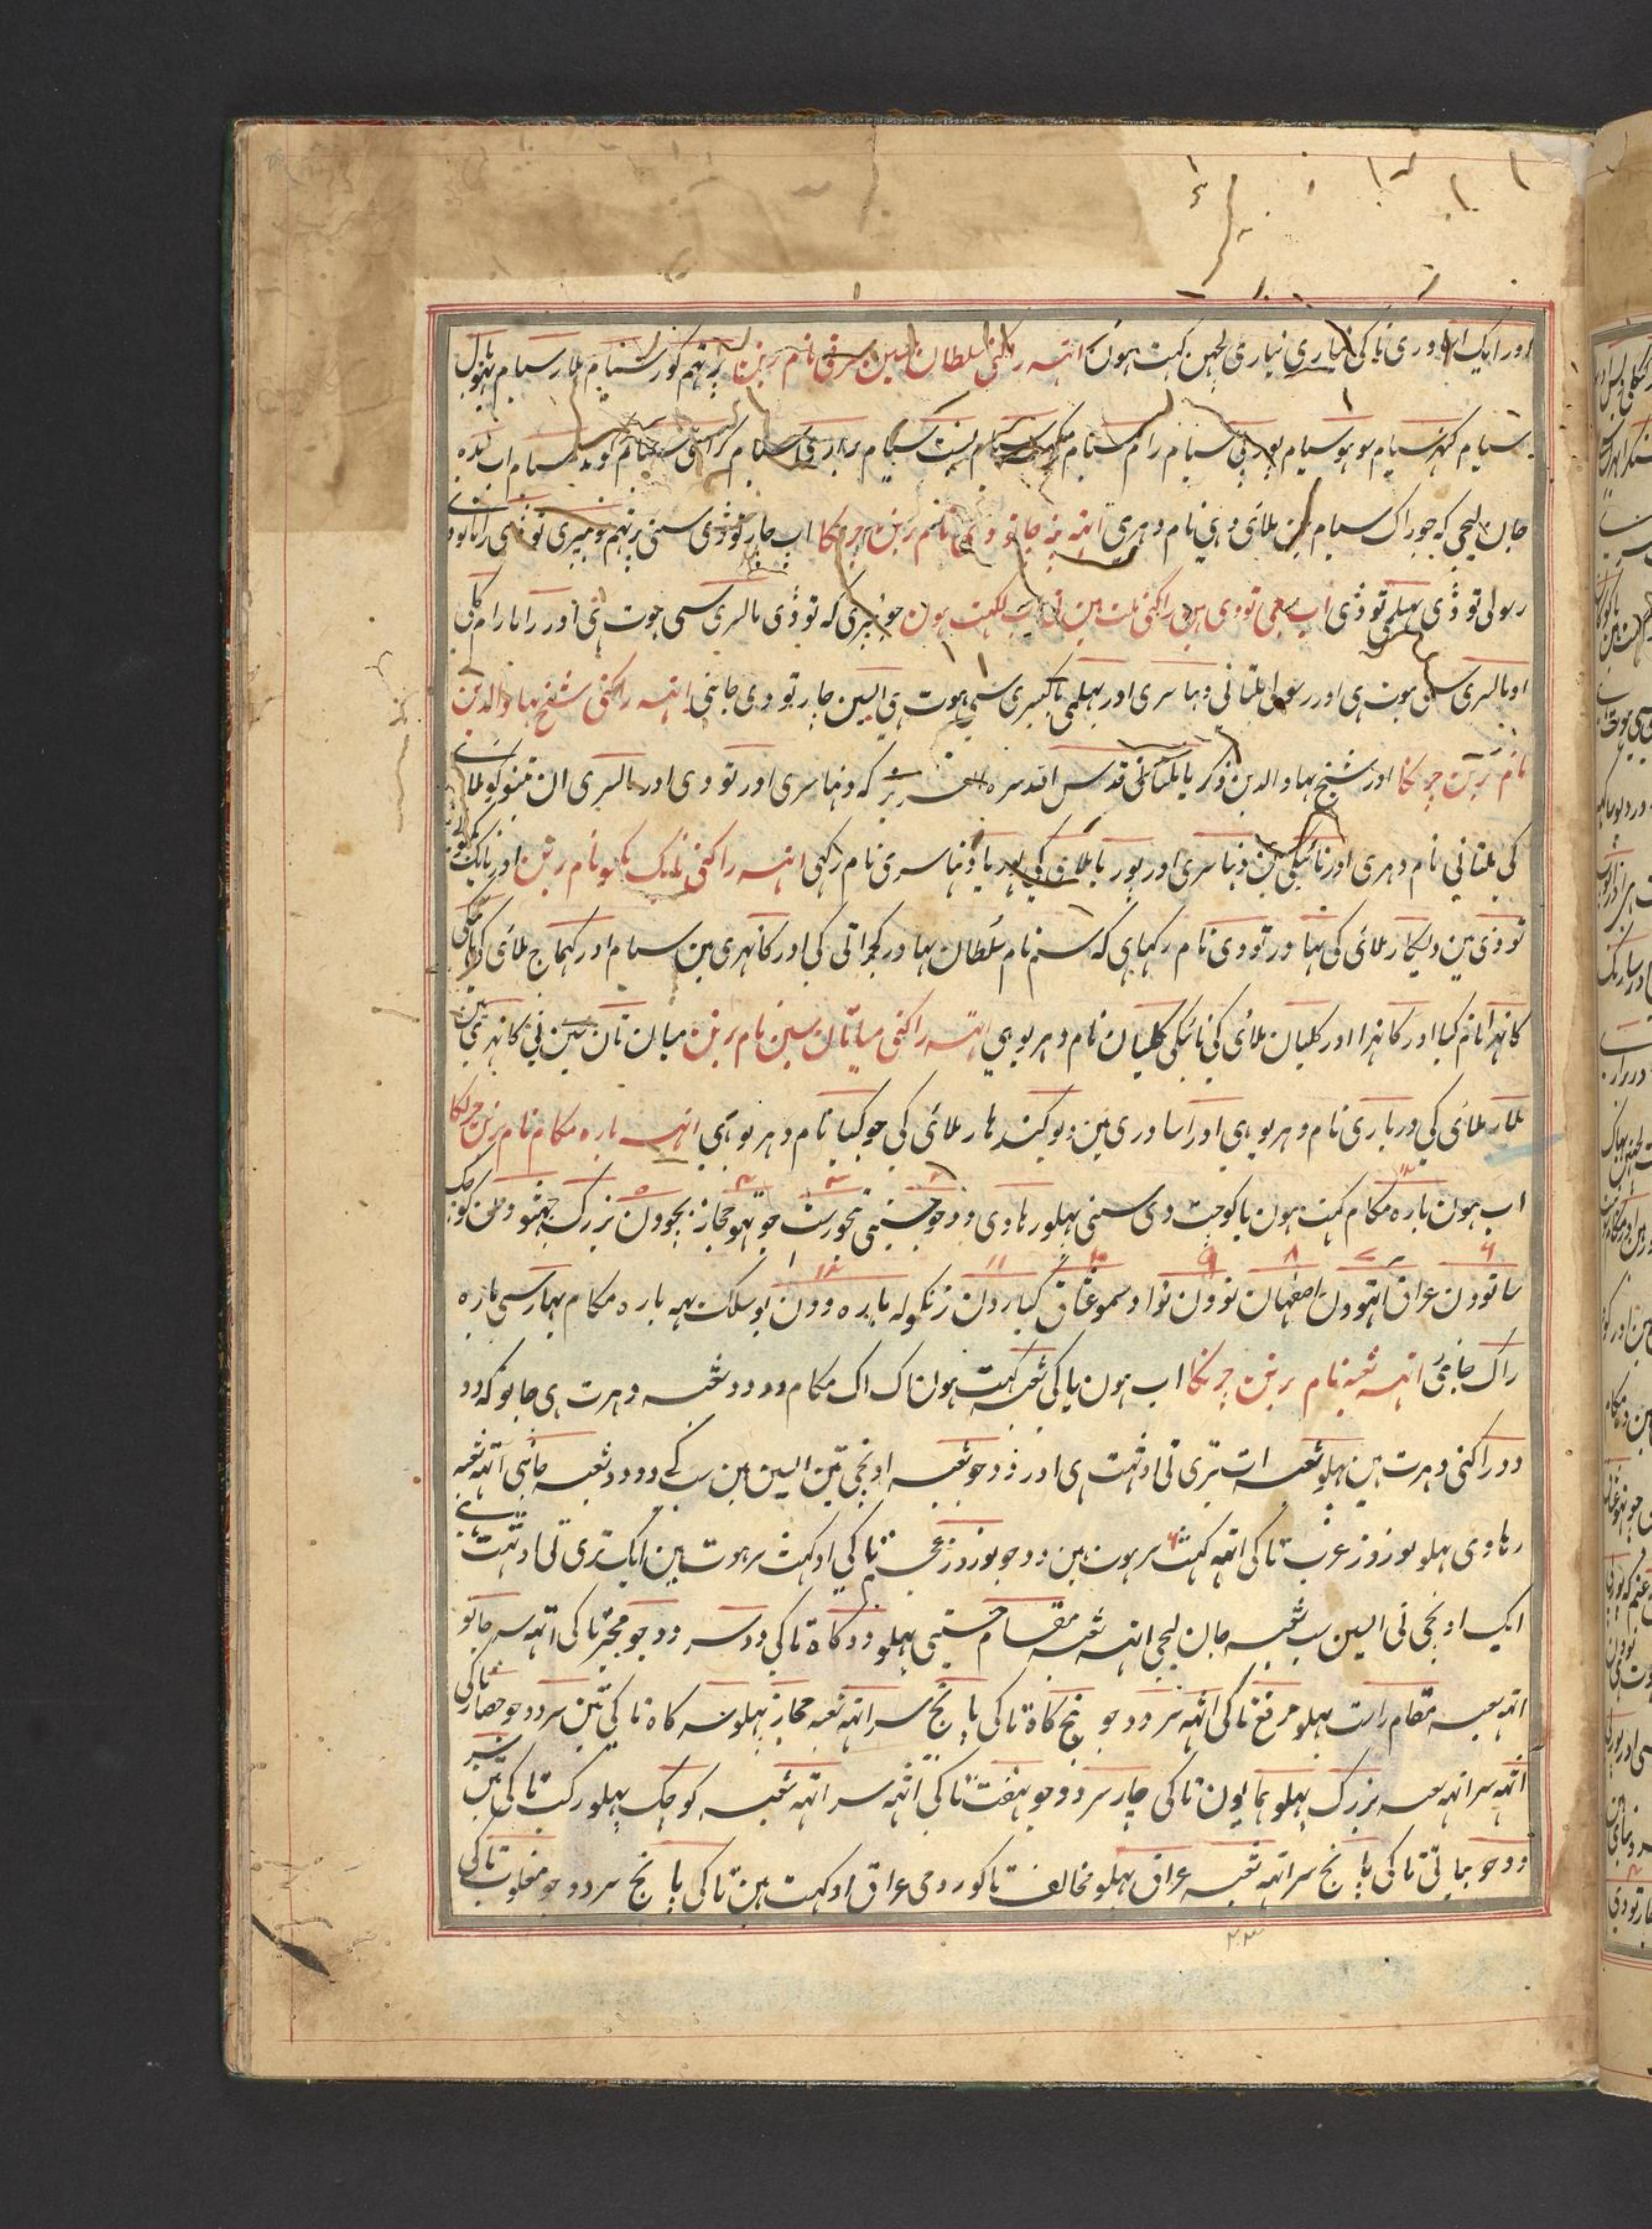 اور ایک اساوری تاکی نیاری نیاری لچہن کہت ہون اتہہ راکنی سلطان حسین شرقی نام برنن پرتہم کور سیام ملار سیام بہوپال
سیام کنہر سیام سو ہو سیام پوربی سیام رام سیام میکہہ سیام بسنت سیام براری سیام کرائی سیام کوند سیام اب بدہ
جان لیجی کہ جو راک سیام مین ملائی وہی نام دہری اتہہ چار تووی نام برنن چرچکا اب چار تووی سنی پرتہم سومیری تووی راما تووی
رسولی تووی بہیلمی تووی اب سبھی تووی مین راکنی ملت مین تی سب لکہت ہون جونپری کہ تووی مالسری سی ہوت ہی اور راما رام کلی
او مالسری سی ہوت ہی اور رسولی ملتانی دہناسری اور بہیلمی باکیسری سی ہوت ہی ایسین چار تووی جانبی اتہہ راکنی شیخ بہاو الدین
نام برنن چرچکا اور شیخ بہاو الدین ذکریا ملتانی قدس اللہ سرہ العزیز کہ دہناسری اور تووی اور مالسری ان تینو کو ملا
کی ملتانی نام دہری اور نائیکی مین دہناسری اور پوریا ملای کی پوریا دہناسری نام رکہی اتہہ راکنی نایک بکسو نام برنن اور نایک بکسو نی
تووی مین دیسکار ملائی کی بہادر تووی نام رکہا ہی کہ سنم نام سلطان بہادر کجراتی کی اور کانہری مین سیام اور کہماج ملائی کی نایکی
کانہرا نام کیا اور کانہرا اور کلیان ملائی کی نائیکی کلیان نام دہریو ہی اتہہ راکنی میا تان سین نام برنن میان تان سین نی کانہری مین
ملار ملائی کی درباری نام دہریو ہی اور اساوری مین دیو کندہار ملائی کی جو کیا نام دہریو ہی اتہہ بارہ مکام نام برنن چرچکا
اب ہون بارہ مکام کہت ہون یا کو چت دی سنی پہلو رہاوی دوجو حسینی تیجو راست چوتہو حجاز پنجوون بزرک چہٹو ون کوچک
ساتوون عراق آٹہوون اصفہان نوون نوا دسمو عشاق کیاروان زنکولہ بارہ وون بوسلک یہہ بارہ مکام ہمارسی بارہ
راک جانبی اتہہ شعبہ نام برنن چرچکا اب ہون یا کی شعبہ کہت ہون اک اک مکام دو دو شعبہ دہرت ہی جانو کہ دو
دو راکنی دہرت ہین پہلو شعبہ ات تری تی اوٹہت ہی اور دوجو شعبہ اونچی تین ایسین ہین سب کے دو دو شعبہ جانبی اتہہ شعبہ
رہاوی پہلو نوروز عرب تاکی اتہہ کہٹ سر ہوت ہین دوجو نوروز عجم تاکی او کہٹ سر ہوت ہین ایک تری تی اوٹہت ہی
ایک اونچی تی ایسین سب شعبہ جان لیجی اتہہ شعبہ مقام حسینی پہلو دوکاہ تاکی دو سر دوجو محیر تاکی اتہہ سر جانو
اتہہ شعبہ مقام راست پہلو مرقع تاکی اتہہ سر دوجو پنج کاہ تاکی پانج سر اتہہ شعبہ حجاز پہلو سہ کاہ تاکی تین سر دوجو حصار تاکی
اتہہ سر اتہہ شعبہ بزرک پہلو ہمایون تاکی چار سر دوجو نہفت تاکی اتہہ سر اتہہ شعبہ کوچک پہلو رکب تاکی تین سر
دوجو بیاتی تاکی پانج سر اتہہ شعبہ عراق پہلو مخالف تاکو رومی عراق او کہت ہین تاکی پانج سر دوجو مغلوب تاکی